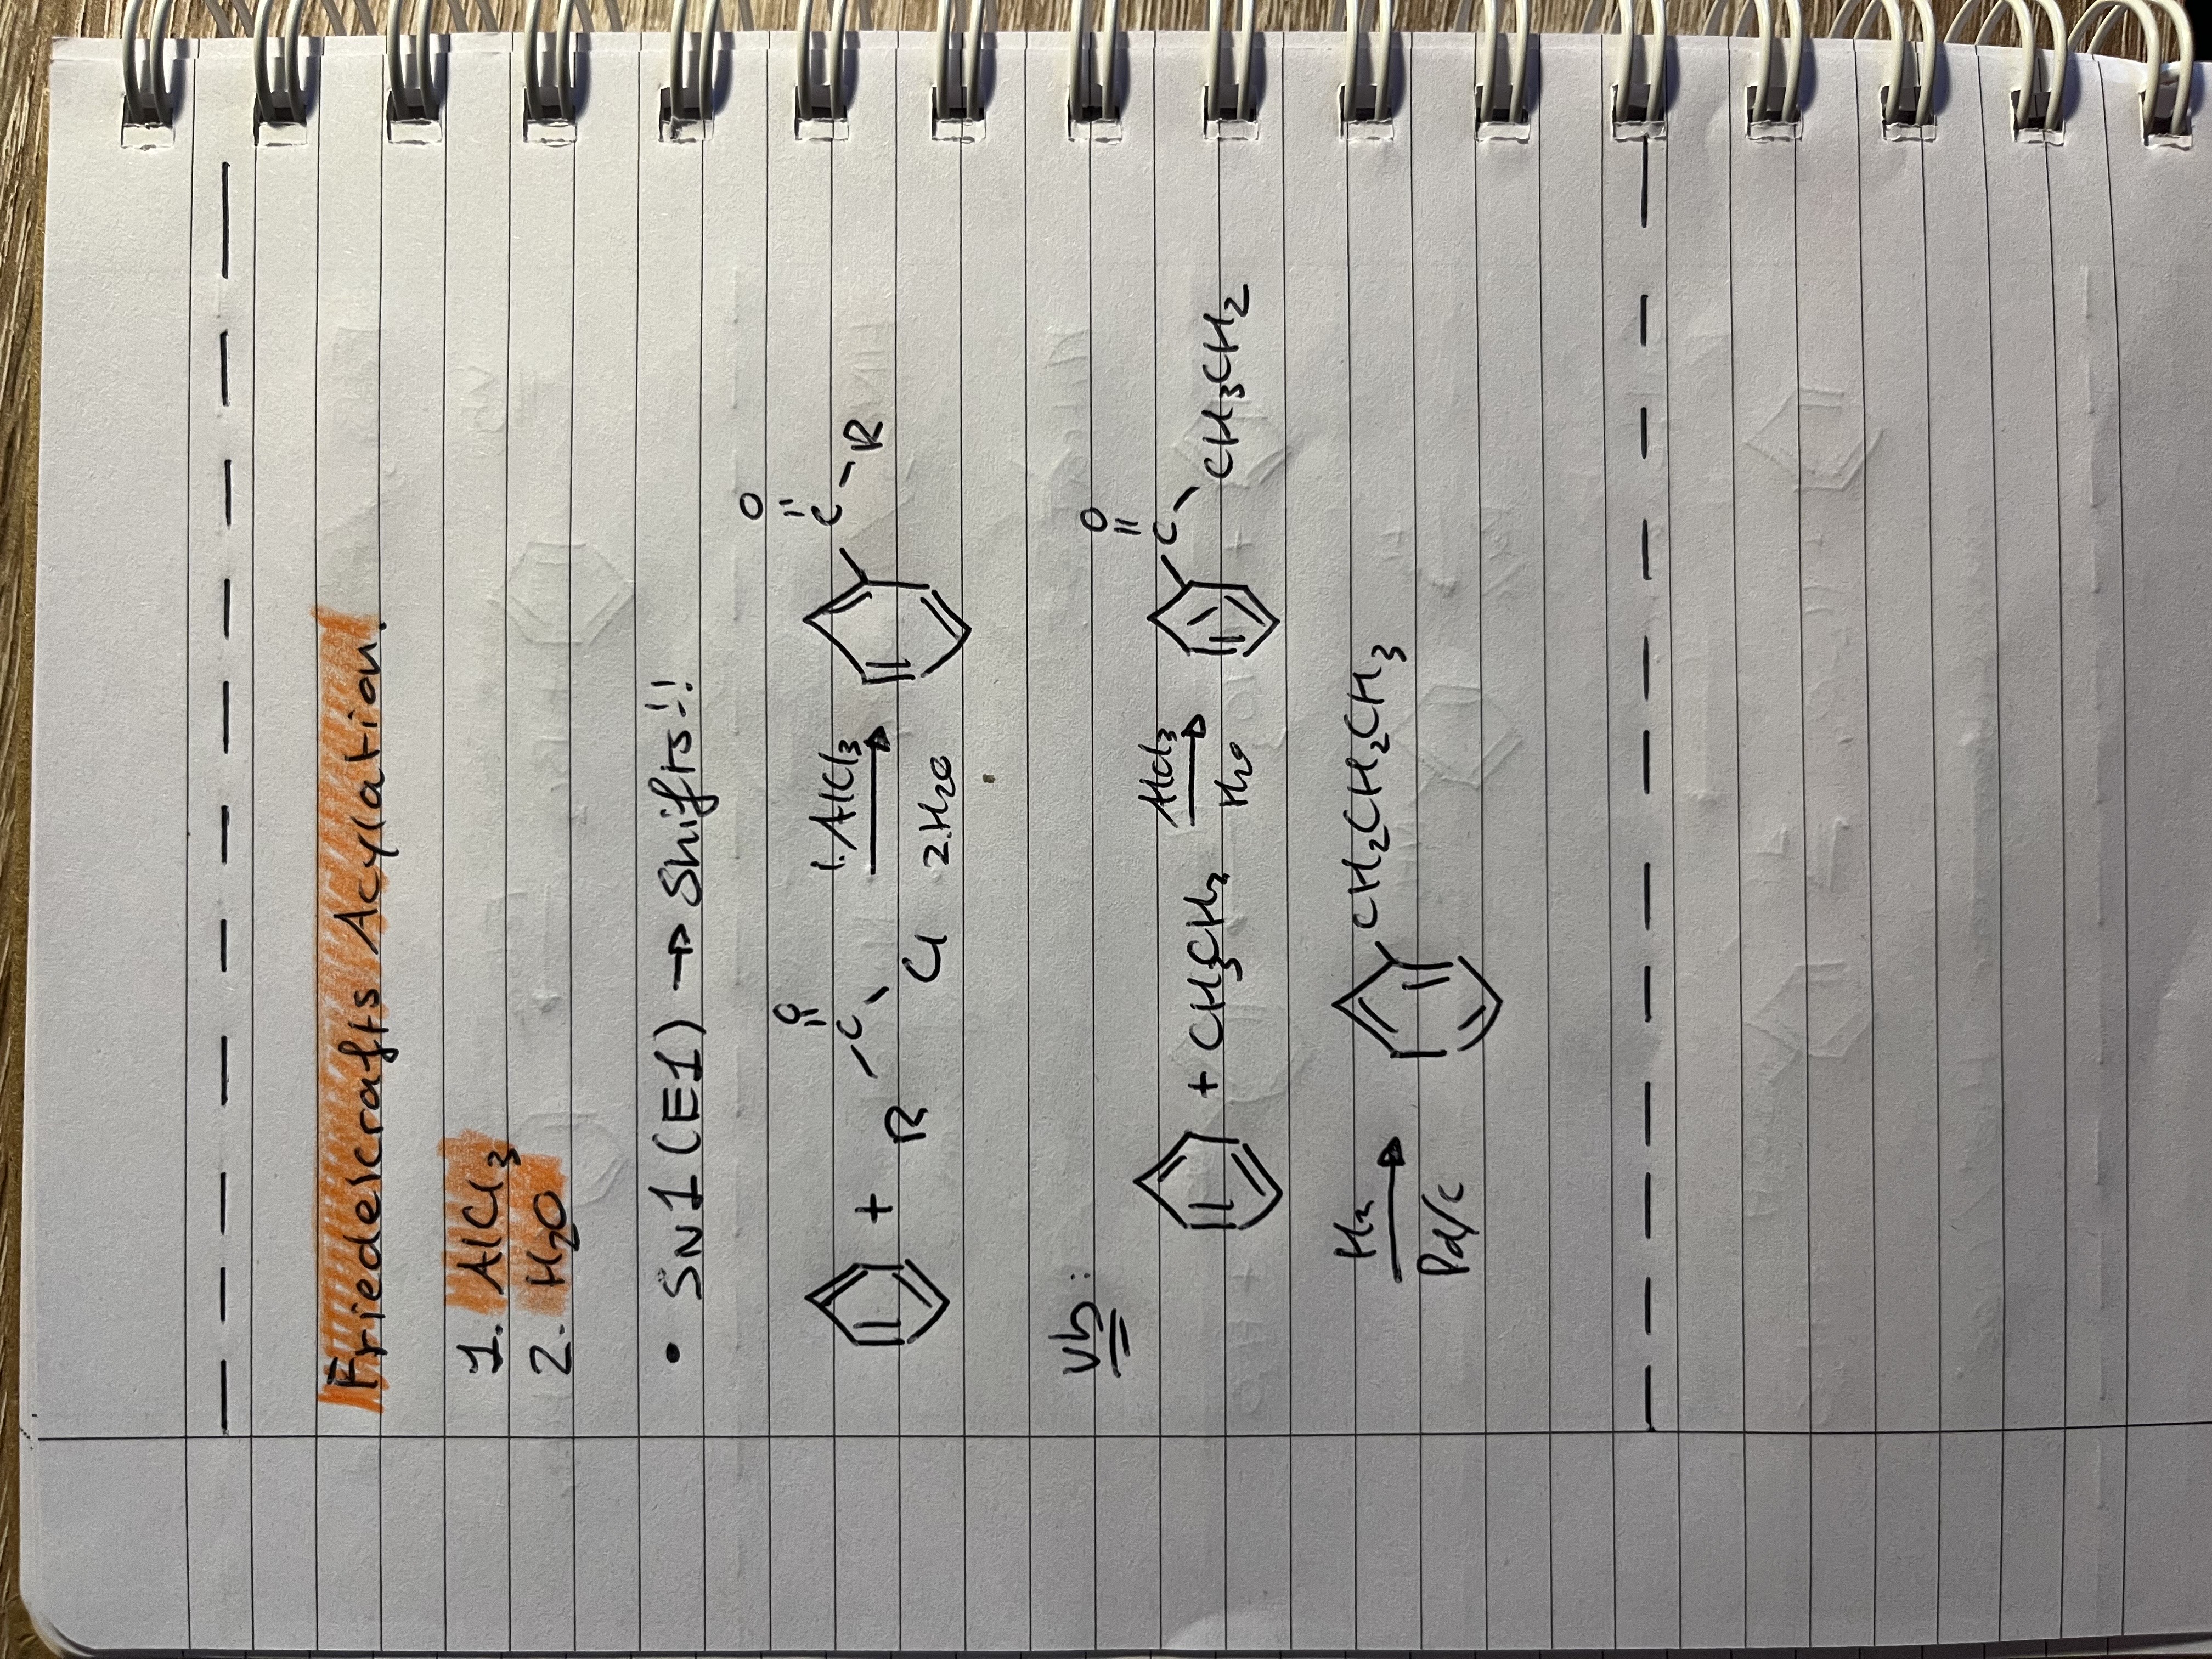 Friedelcrafts Acylation.
1. AlCl3
2. H2O
• SN1 (E1) → Shifts!!
+ R C O Cl 1. AlCl3 2. H2O C O R
Vb:
+ CH3CH2 AlCl3 H2O C O CH3CH2
H2 Pd/C CH2CH2CH3